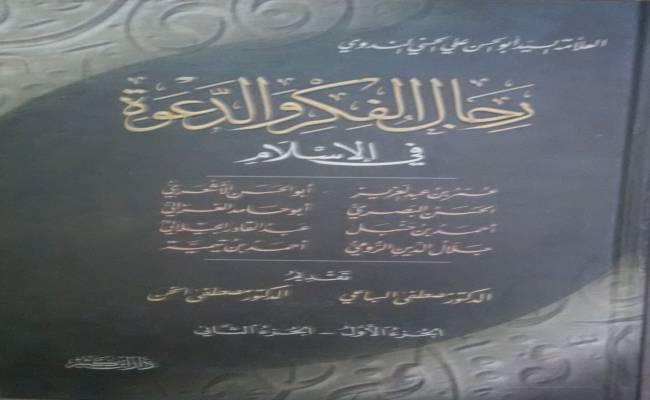 العلامة السيد أبو الحسن علي الحسني الندوي
رجال الفكر والدعوة
في الإسلام
عمر بن عبد العزيز أبو الحسن الأشعري
الحسن البصري أبو حامد الغزالي
أحمد بن حنبل عبد القادر الجيلاني
جلال الدين الرومي أحمد بن تيمية
تقديم
الدكتور مصطفى السباعي الدكتور مصطفى الخن
الجزء الأول - الجزء الثاني
دار ابن كثير